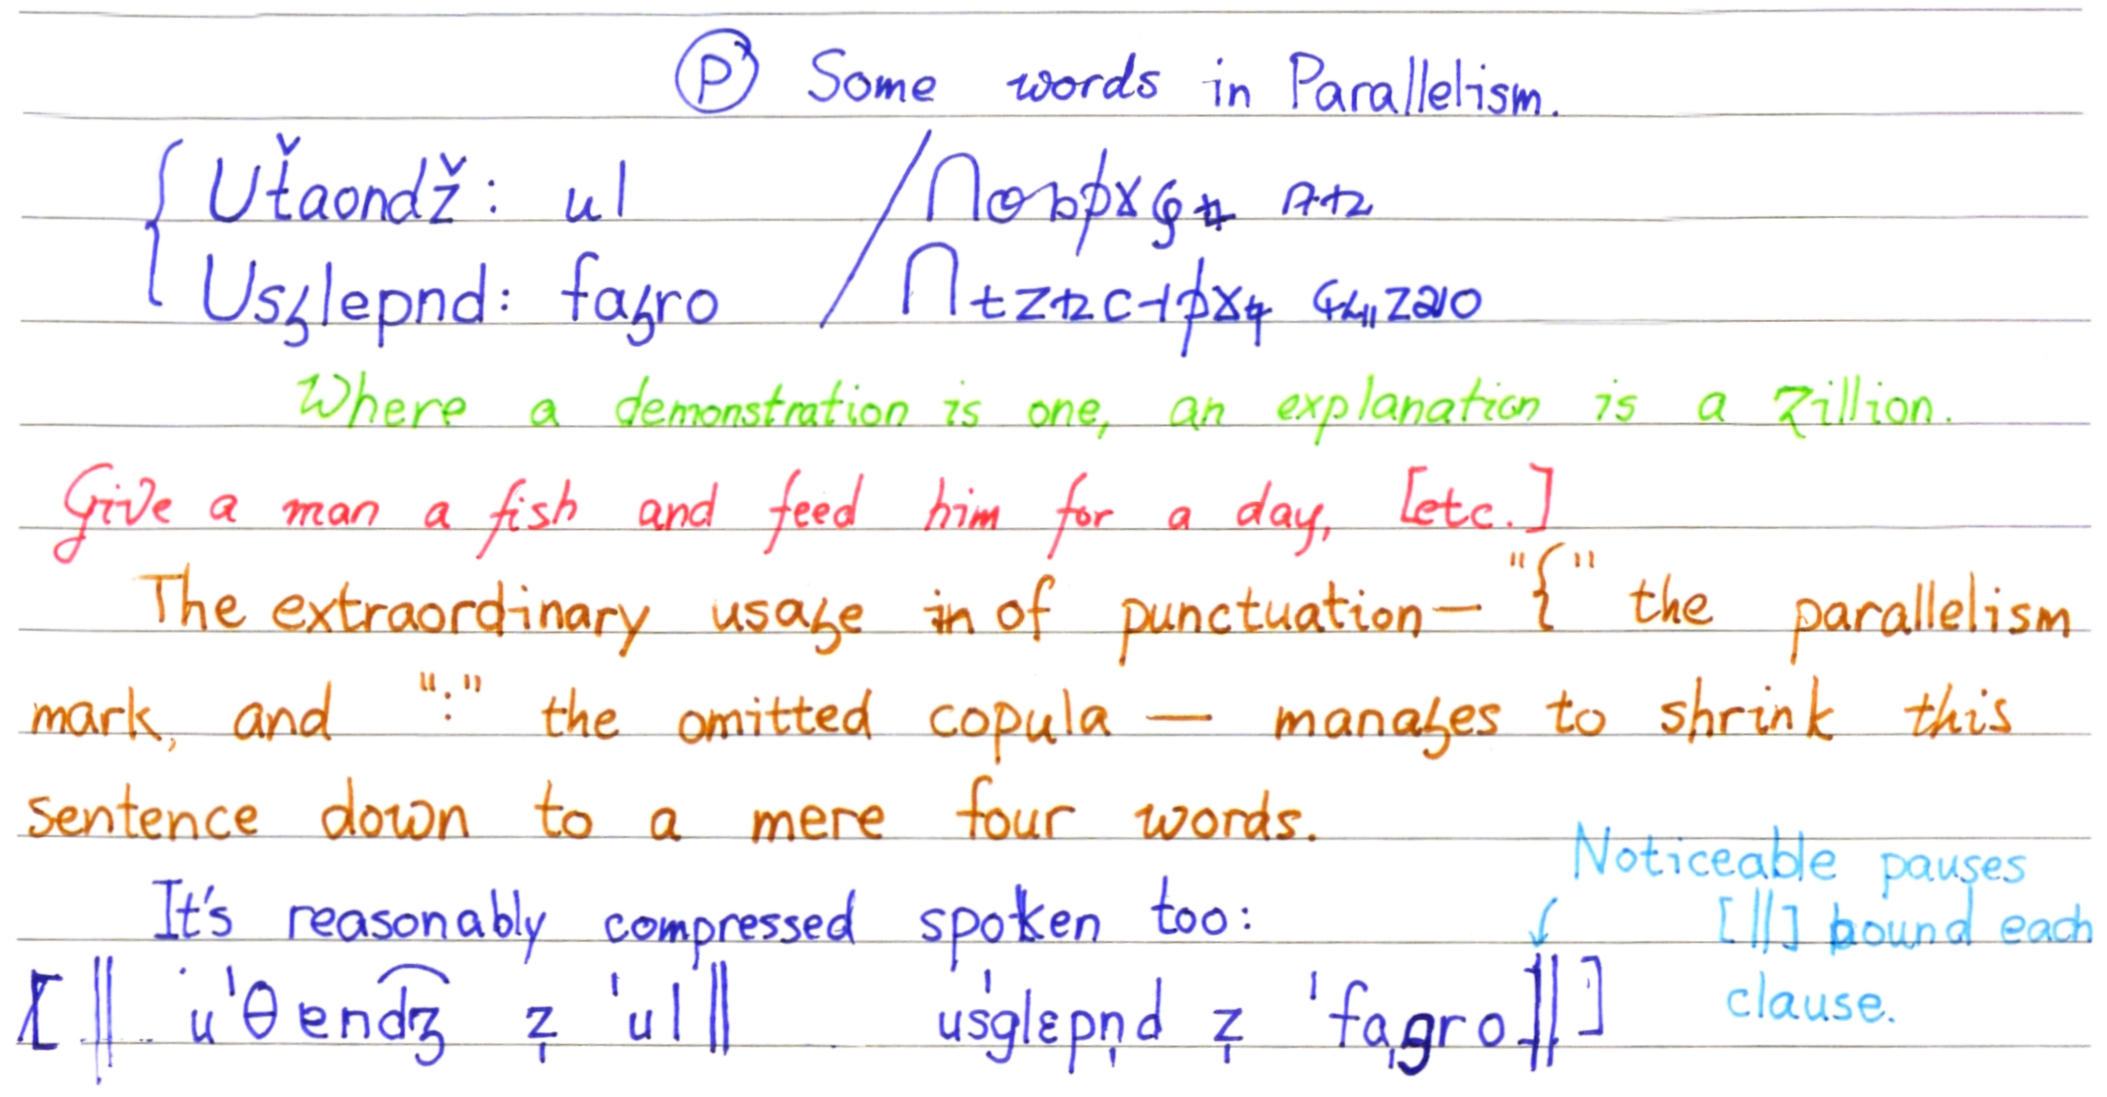 Ⓟ Some words in Parallelism.
{ Uťaondž: ul /
Usglepnd: fagro /
Where a demonstration is one, an explanation is a zillion.
Give a man a fish and feed him for a day, [etc.]
The extraordinary usage in of punctuation— "{" the parallelism
mark, and ":" the omitted copula — manages to shrink this
sentence down to a mere four words.
It's reasonably compressed spoken too:
Noticeable pauses
[‖] bound each
clause.
[‖ u'θend͡ʒ z̩ 'ul‖ us'glɛpn̩d z̩ 'fa̩gro‖]